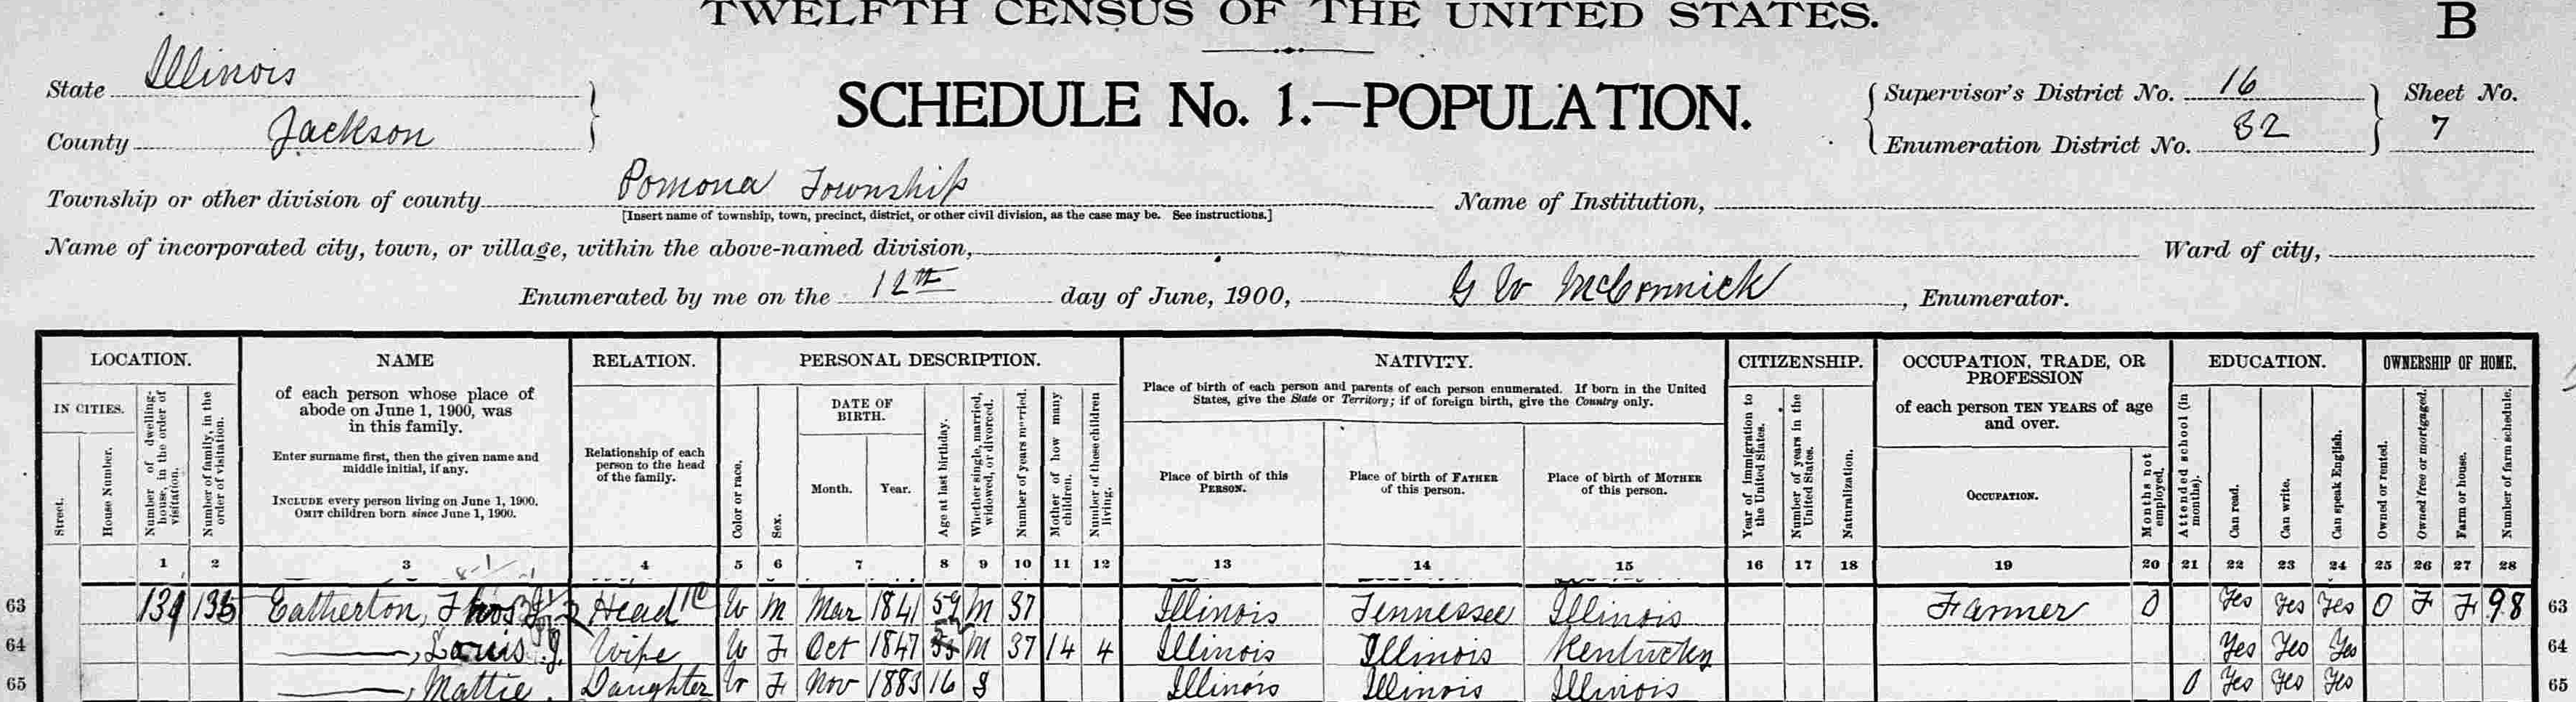 TWELFTH CENSUS OF THE UNITED STATES.
B
State Illinois
County Jackson
SCHEDULE No. 1.—POPULATION.
Supervisor's District No. 16
Enumeration District No. 82
Sheet No.
7
Township or other division of county Pomona Township
[Insert name of township, town, precinct, district, or other civil division, as the case may be. See instructions.]
Name of Institution,
Name of incorporated city, town, or village, within the above-named division,
Ward of city,
Enumerated by me on the 12th day of June, 1900, G W McCormick, Enumerator.
LOCATION.
IN CITIES.
Street.
House Number.
Number of dwelling-house, in the order of visitation.
Number of family, in the order of visitation.
NAME
of each person whose place of
abode on June 1, 1900, was
in this family.
Enter surname first, then the given name and
middle initial, if any.
INCLUDE every person living on June 1, 1900.
OMIT children born since June 1, 1900.
RELATION.
Relationship of each
person to the head
of the family.
PERSONAL DESCRIPTION.
Color or race.
Sex.
DATE OF
BIRTH.
Month.
Year.
Age at last birthday.
Whether single, married, widowed, or divorced.
Number of years married.
Mother of how many children.
Number of these children living.
NATIVITY.
Place of birth of each person and parents of each person enumerated. If born in the United
States, give the State or Territory; if of foreign birth, give the Country only.
Place of birth of this
PERSON.
Place of birth of FATHER
of this person.
Place of birth of MOTHER
of this person.
CITIZENSHIP.
Year of immigration to the United States.
Number of years in the United States.
Naturalization.
OCCUPATION, TRADE, OR
PROFESSION
of each person TEN YEARS of age
and over.
OCCUPATION.
Months not employed.
EDUCATION.
Attended school (in months).
Can read.
Can write.
Can speak English.
OWNERSHIP OF HOME.
Owned or rented.
Owned free or mortgaged.
Farm or house.
Number of farm schedule.
1 2 3 4 5 6 7 8 9 10 11 12 13 14 15 16 17 18 19 20 21 22 23 24 25 26 27 28
63 134 135 Eatherton, Thos Head W M Mar 1841 59 M 37 Illinois Tennessee Illinois Farmer 0 Yes Yes Yes O F F 98 63
64 ——, Louis J. Wife W F Oct 1847 M 37 14 4 Illinois Illinois Kentucky Yes Yes Yes 64
65 ——, Mattie Daughter W F Nov 1883 16 S Illinois Illinois Illinois 0 Yes Yes Yes 65